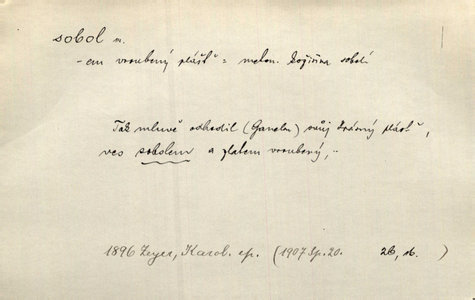 sobol m.
-em vroubený plášť = meton. kožišina sobolí
Tak mluvě odhodil (Ganelon) svůj krásný plášť,
ves sobolem a zlatem vroubený,..
1896 Zeyer, Karol. ep. (1907 Sp. 20. 26, )